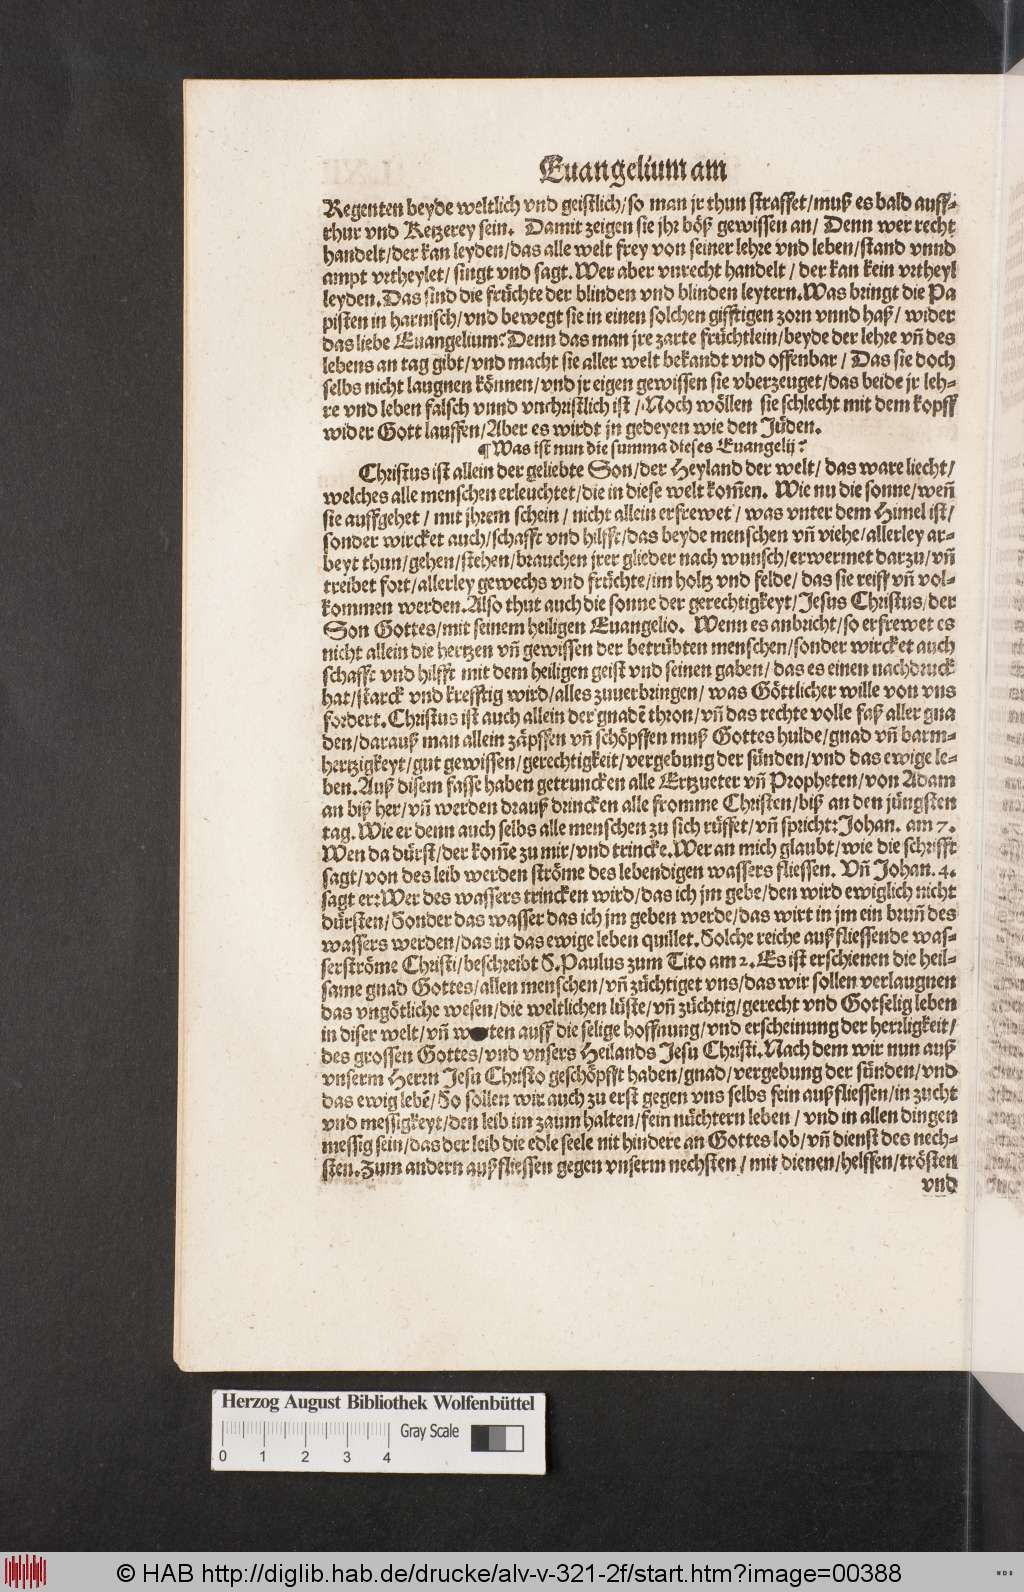 Euangelium am
Regenten beyde weltlich vnd geistlich/so man jr thun straffet/muß es bald auff-
rhur vnd Ketzerey sein. Damit zeigen sie jhr böß gewissen an/ Denn wer recht
handelt/der kan leyden/das alle welt frey von seiner lehre vnd leben/stand vnnd
ampt vrtheylet/ singt vnd sagt. Wer aber vnrecht handelt / der kan kein vrtheyl
leyden. Das sind die früchte der blinden vnd blinden leytern. Was bringt die Pa
pisten in harnisch/vnd bewegt sie in einen solchen gifftigen zorn vnnd haß/ wider
das liebe Euangelium? Denn das man jre zarte früchtlein/beyde der lehre vñ des
lebens an tag gibt/vnd macht sie aller welt bekandt vnd offenbar / Das sie doch
selbs nicht laugnen können/vnd jr eigen gewissen sie vberzeuget/das beide jr leh-
re vnd leben falsch vnnd vnchristlich ist / Noch wöllen sie schlecht mit dem kopff
wider Gott lauffen/Aber es wirdt jn gedeyen wie den Jüden.
¶ Was ist nun die summa dieses Euangelij?
Christus ist allein der geliebte Son/der Heyland der welt/ das ware liecht/
welches alle menschen erleuchtet/die in diese welt kom̃en. Wie nu die sonne/weñ
sie auffgehet / mit jhrem schein / nicht allein erfrewet / was vnter dem Himel ist/
sonder wircket auch/schafft vnd hilfft/das beyde menschen vñ viehe/allerley ar-
beyt thun/gehen/stehen/brauchen jrer glieder nach wunsch/erwermet darzu/vñ
treibet fort/allerley gewechs vnd früchte/im holtz vnd felde/ das sie reiff vñ vol-
kommen werden. Also thut auch die sonne der gerechtigkeyt/Jesus Christus/der
Son Gottes/mit seinem heiligen Euangelio. Wenn es anbricht/so erfrewet es
nicht allein die hertzen vñ gewissen der betrübten menschen/sonder wircket auch
schafft vnd hilfft mit dem heiligen geist vnd seinen gaben/ das es einen nachdruck
hat/starck vnd krefftig wird/alles zuuerbringen/ was Göttlicher wille von vns
fordert. Christus ist auch allein der gnadẽ thron/vñ das rechte volle faß aller gna
den/darauß man allein zäpffen vñ schöpffen muß Gottes hulde/gnad vñ barm-
hertzigkeyt/gut gewissen/gerechtigkeit/vergebung der sünden/vnd das ewige le-
ben. Auß disem fasse haben getruncken alle Ertzueter vñ Propheten/von Adam
an biß her/vñ werden drauß drincken alle fromme Christen/biß an den jüngsten
tag. Wie er denn auch selbs alle menschen zu sich rüffet/vñ spricht: Johan. am 7.
Wen da dürst/der kom̃e zu mir/vnd trincke. Wer an mich glaubt/wie die schrifft
sagt/von des leib werden ströme des lebendigen wassers fliessen. Vñ Johan. 4.
sagt er: Wer des wassers trincken wird/das ich jm gebe/den wird ewiglich nicht
dürsten/Sonder das wasser das ich jm geben werde/das wirt in jm ein bruñ des
wassers werden/das in das ewige leben quillet. Solche reiche außfliessende was-
serströme Christi/beschreibt S. Paulus zum Tito am 2. Es ist erschienen die heil-
same gnad Gottes/allen menschen/vñ züchtiget vns/das wir sollen verlaugnen
das vngötliche wesen/die weltlichen lüste/vñ züchtig/gerecht vnd Gotselig leben
in diser welt/vñ w ten auff die selige hoffnung/vnd erscheinung der herzligkeit/
des grossen Gottes/vnd vnsers Heilands Jesu Christi. Nach dem wir nun auß
vnserm Herrn Jesu Christo geschöpfft haben/gnad/vergebung der sünden/vnd
das ewig lebẽ/ So sollen wir auch zu erst gegen vns selbs fein außfliessen/in zucht
vnd messigkeyt/den leib im zaum halten/fein nüchtern leben / vnd in allen dingen
messig sein/das der leib die edle seele nit hindere an Gottes lob/vñ dienst des nech-
sten. Zum andern außfliessen gegen vnserm nechsten / mit dienen/helffen/trösten
vnd
Herzog August Bibliothek Wolfenbüttel
Gray Scale
0 1 2 3 4
© HAB http://diglib.hab.de/drucke/alv-v-321-2f/start.htm?image=00388